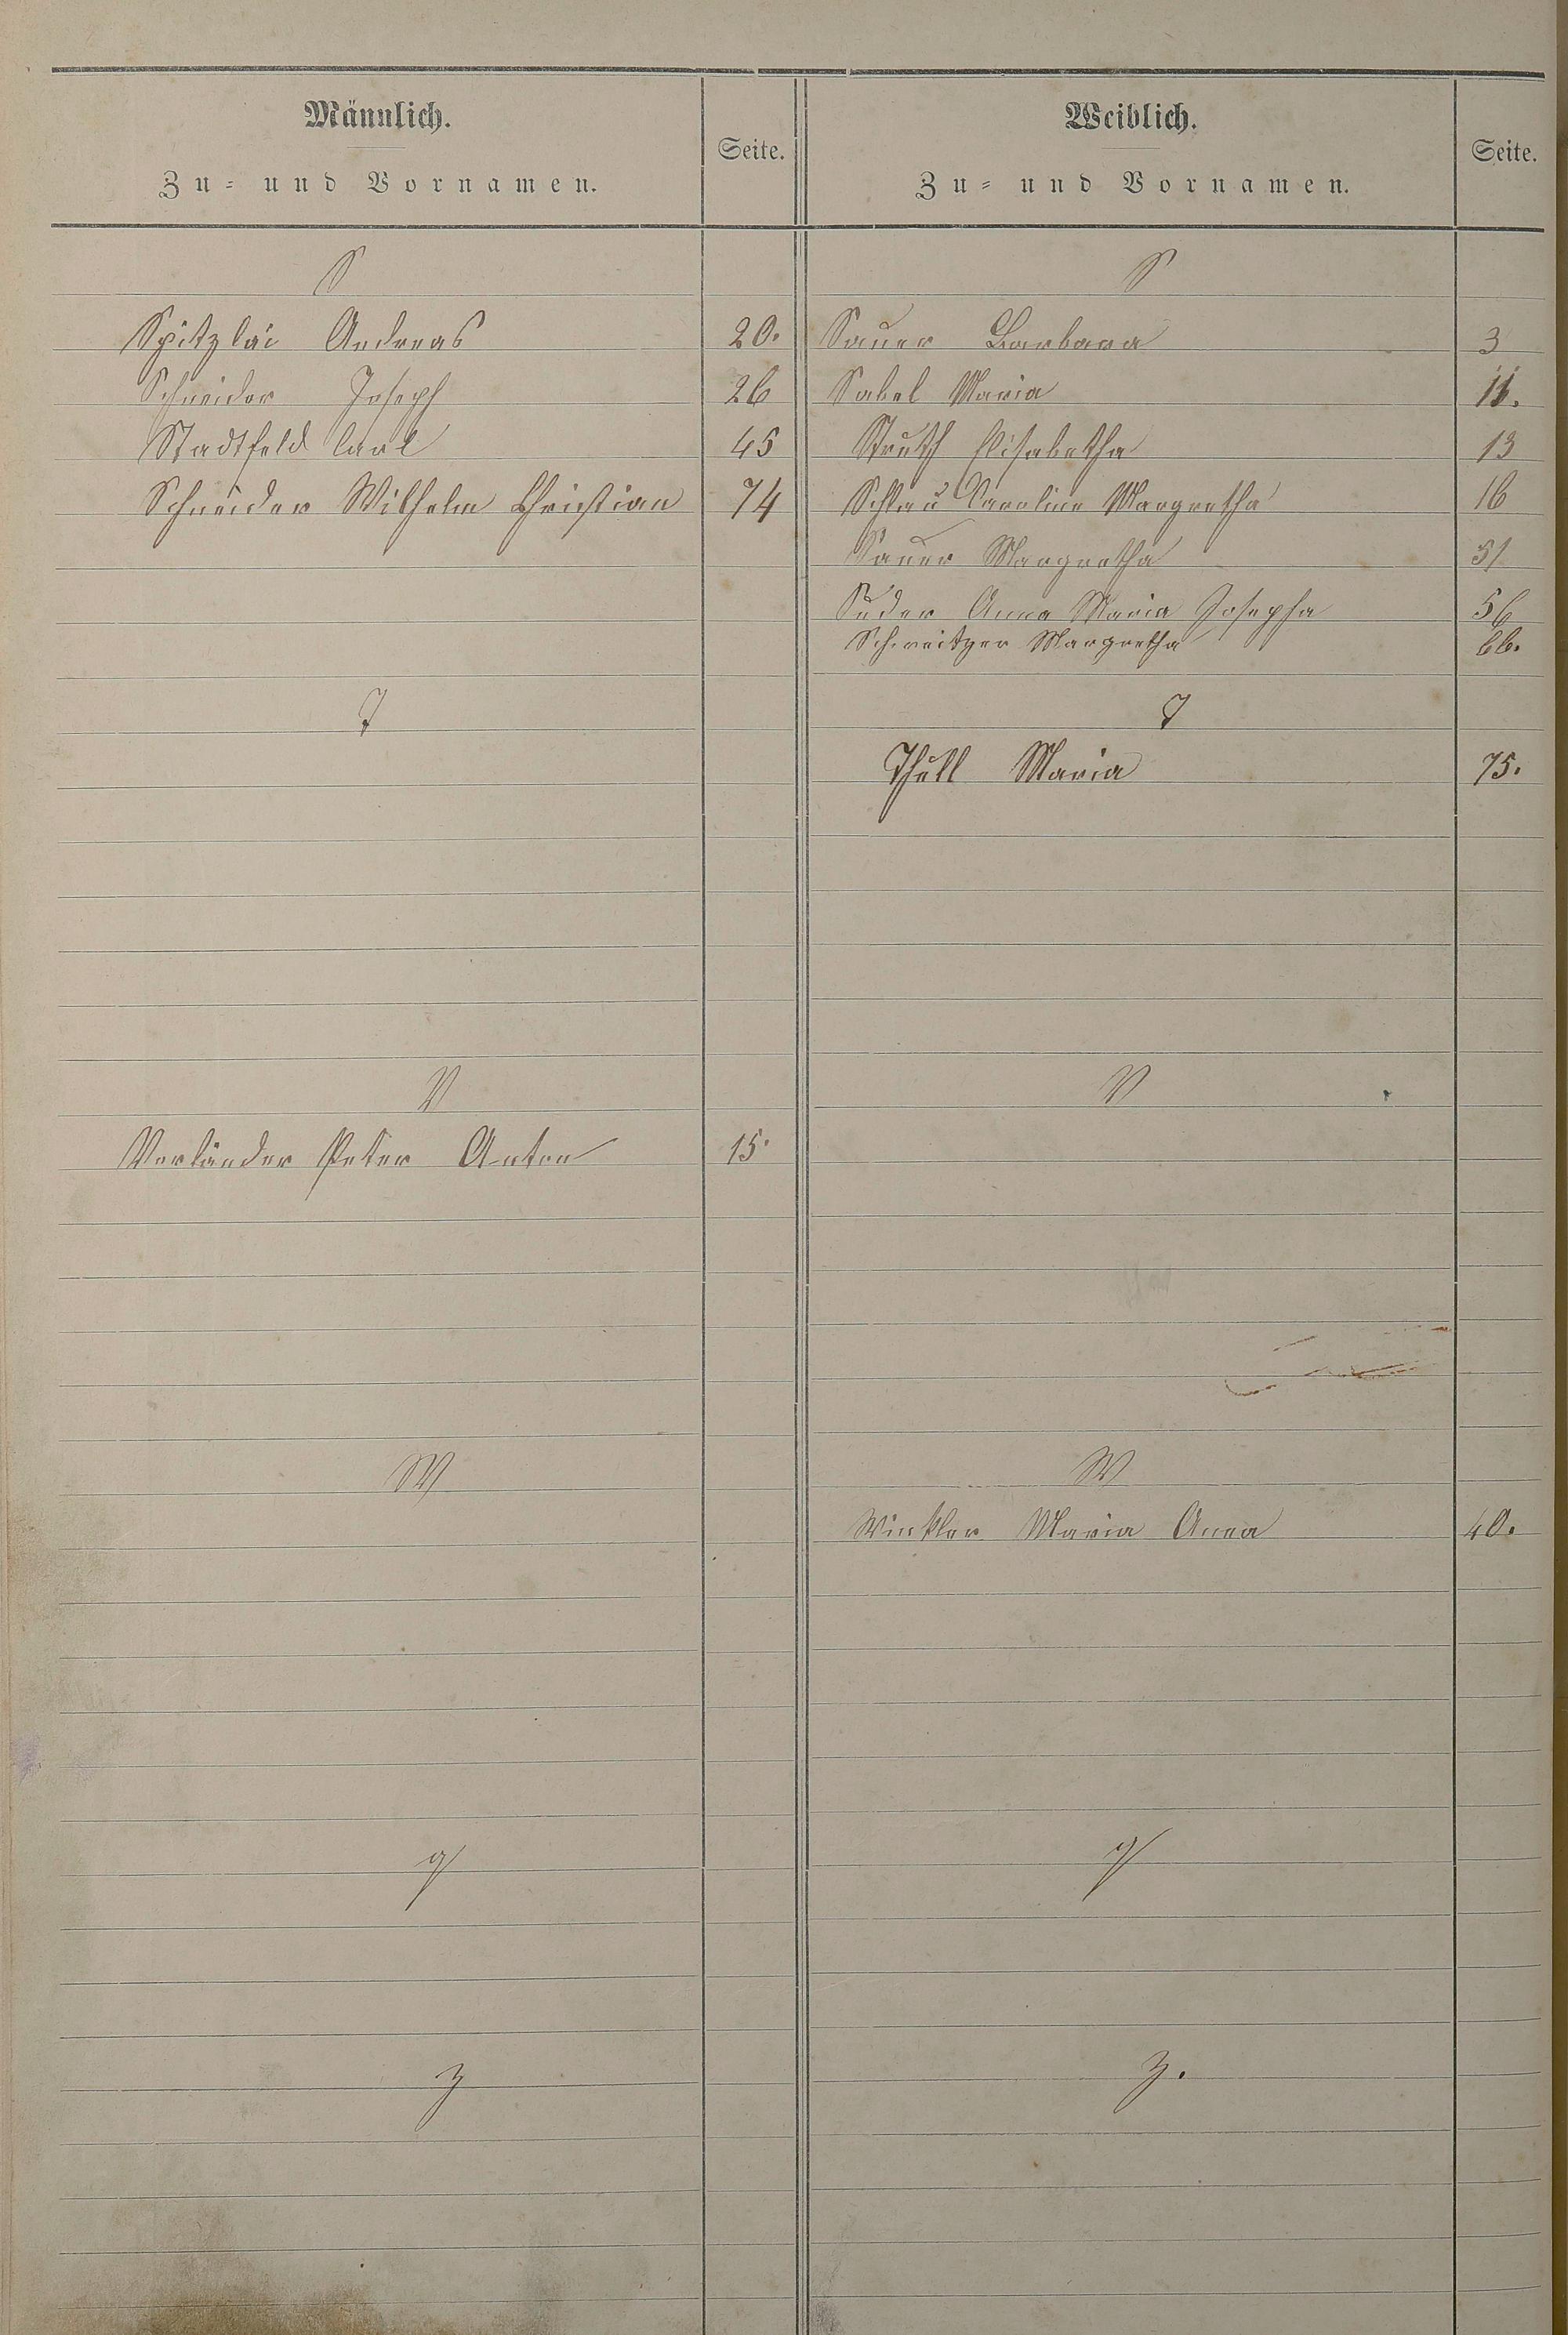 Männlich.
Zu- und Vornamen.
Seite.
S
Spitzlai Andreas 20.
Schneider Joseph 26
Stadtfeld Carl 45
Schneider Wilhelm Christian 74
T
V
Vorländer Peter Anton 15.
W
Y
Z
Weiblich.
Zu- und Vornamen.
Seite.
S
Sauer Barbara 3
Sabel Maria 11.
Struth Elisabetha 13
Caroline Margretha 16
Sauer Margretha 51
Suder Anna Maria Josepha 56
Schweitzer Margretha 66.
T
Thull Maria 75.
V
W
Winkler Maria Anna 40.
Y
Z.